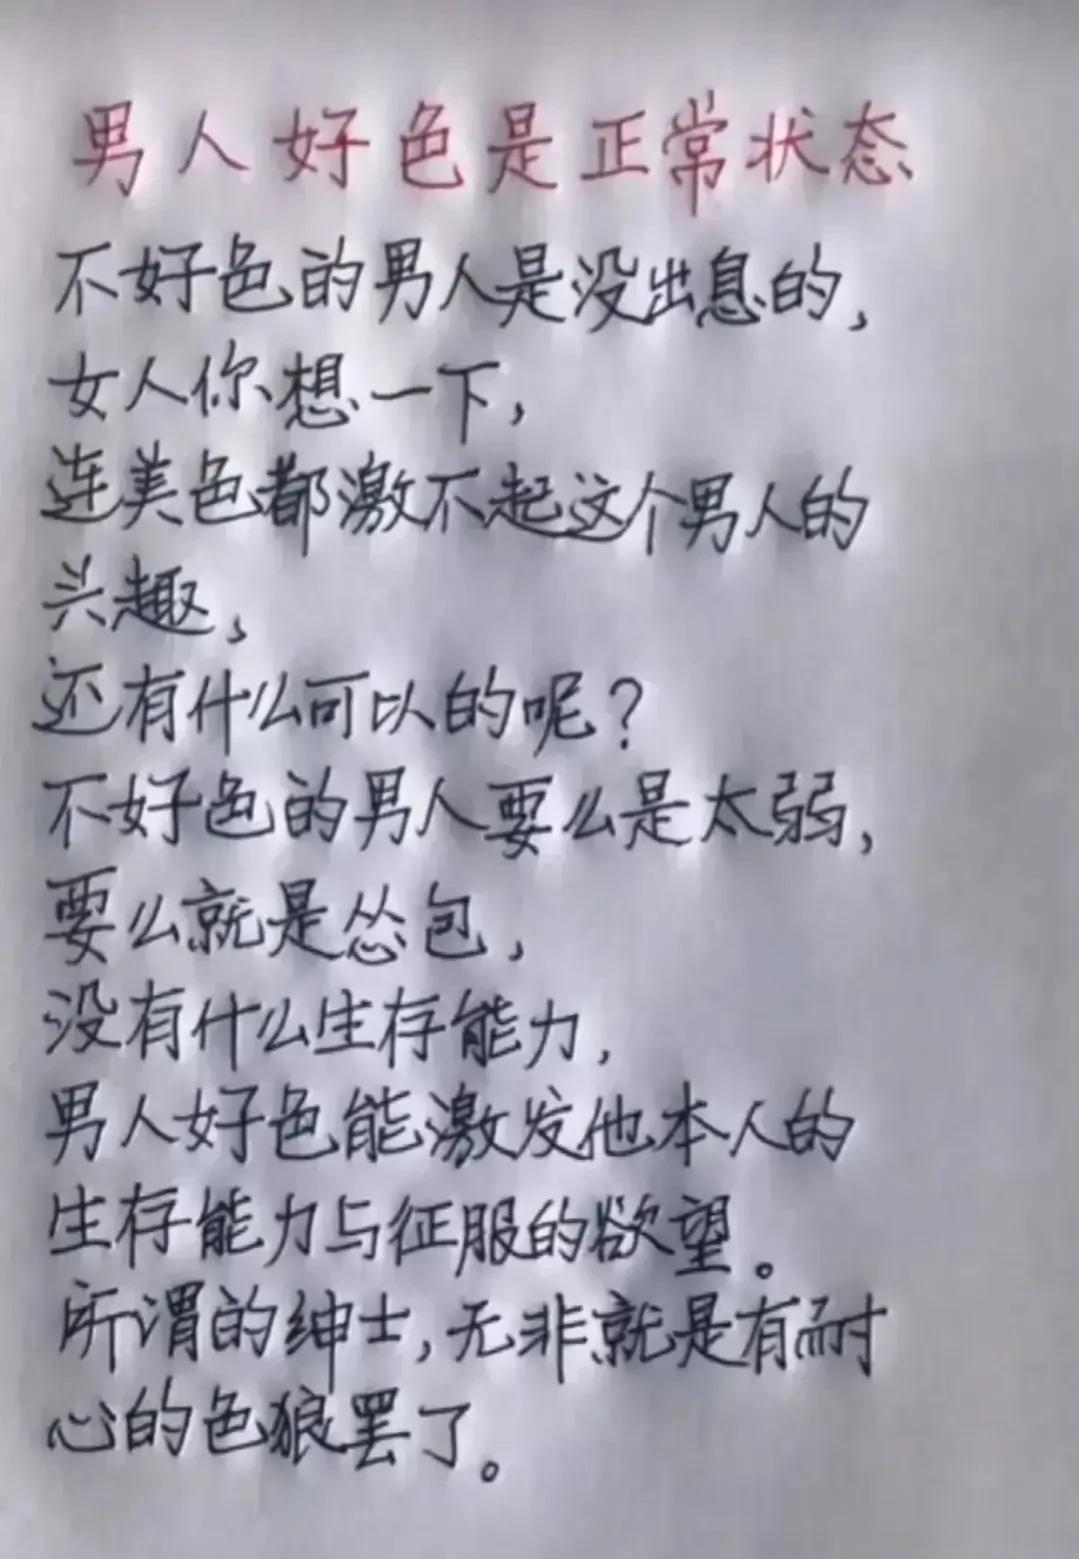 男人好色是正常状态
不好色的男人是没出息的,
女人你想一下,
连美色都激不起这个男人的
兴趣,
还有什么可以的呢?
不好色的男人要么是太弱,
要么就是怂包,
没有什么生存能力,
男人好色能激发他本人的
生存能力与征服的欲望。
所谓的绅士,无非就是有耐
心的色狼罢了。